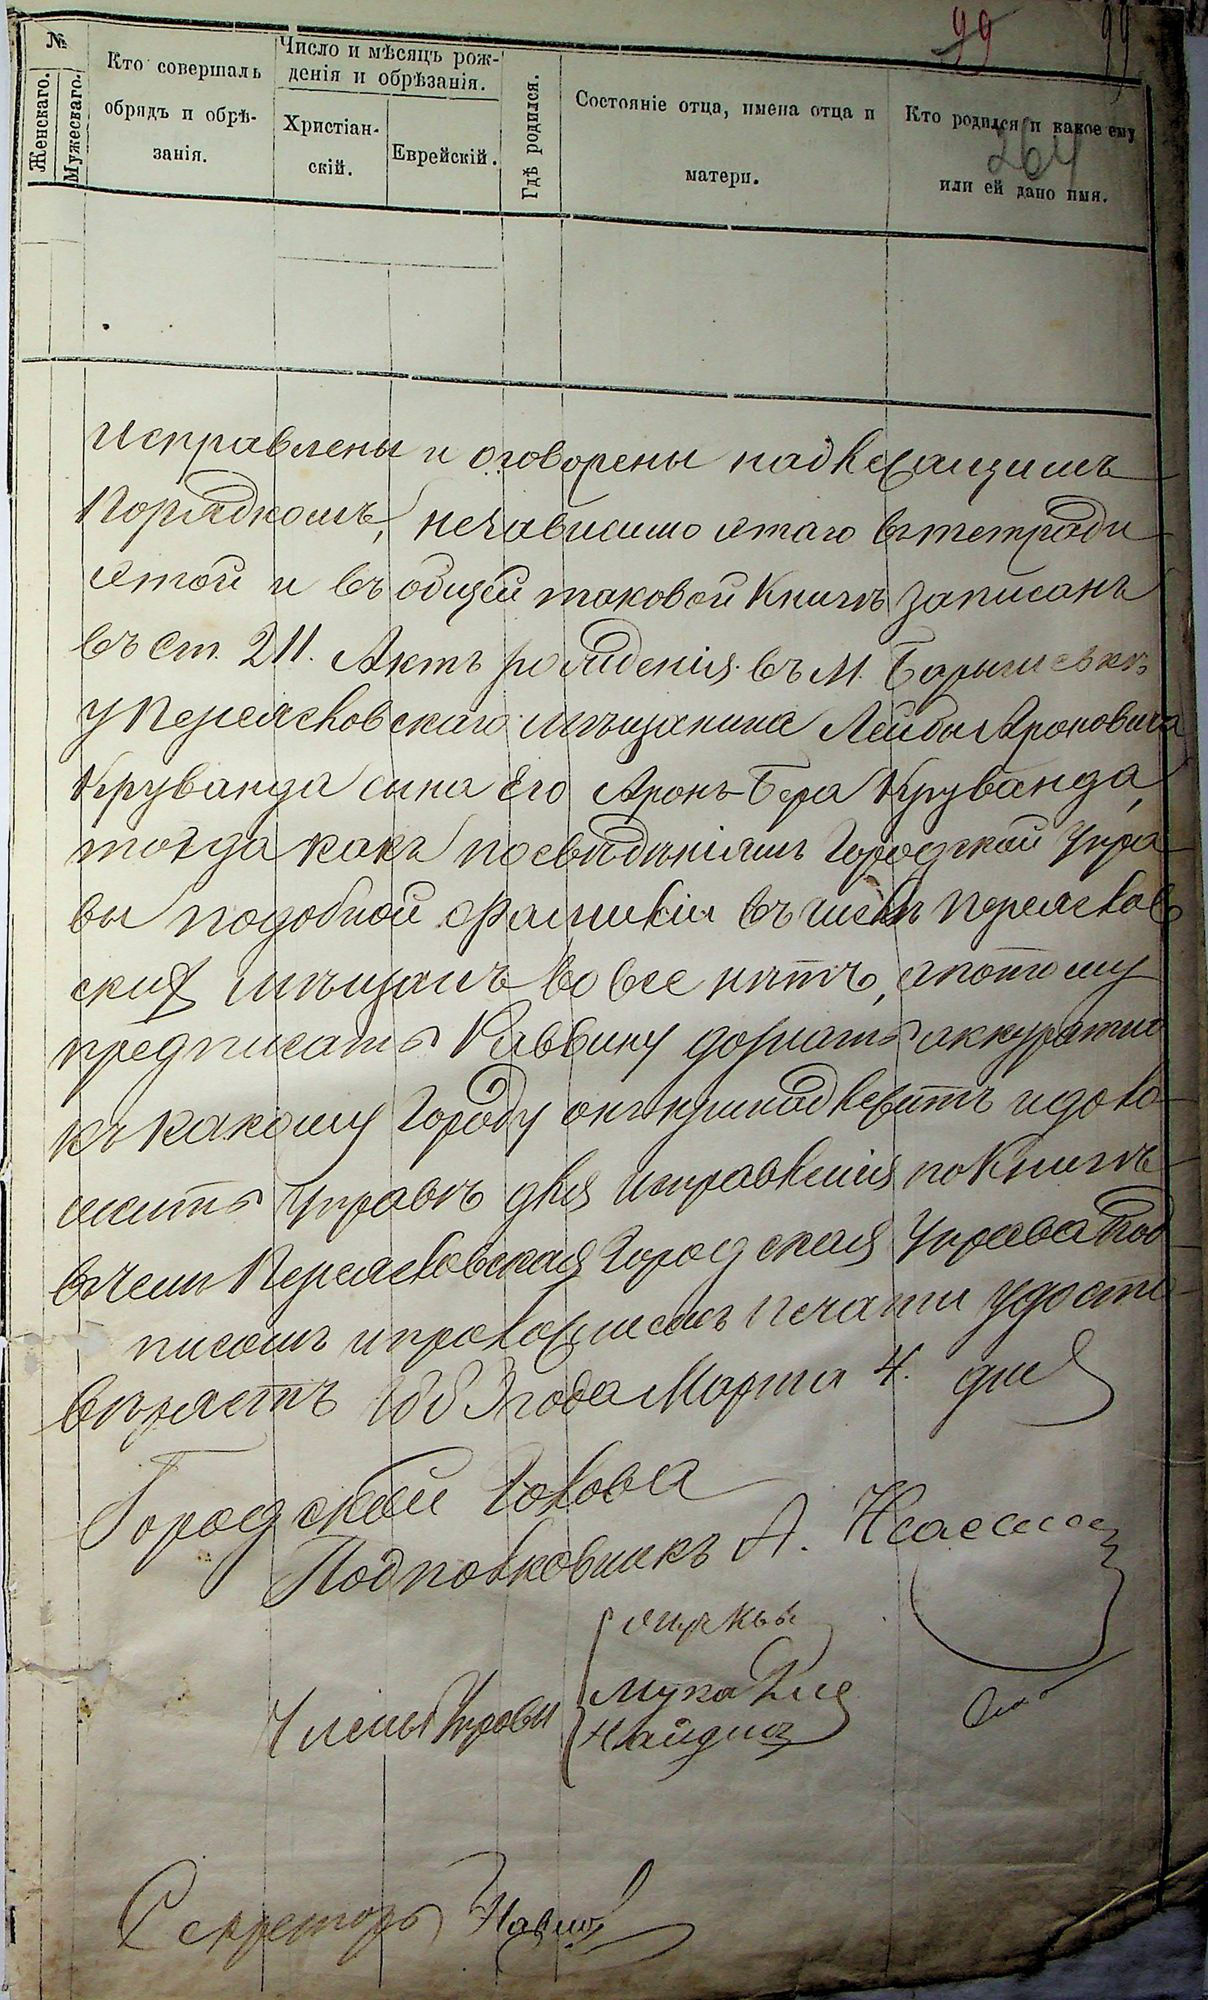 99 99
264
№
Женскаго.
Мужескаго.
Кто совершалъ
обрядъ и обрѣ-
занія.
Число и мѣсяцъ рож-
денія и обрѣзанія.
Христіан-
скій.
Еврейскій.
Гдѣ родился.
Состояніе отца, имена отца и
матери.
Кто родился и какое ему
или ей дано имя.
исправлены и оговорены надлежащимъ
порядкомъ, независимо этаго въ тетради
этой и въ общей таковой Книгѣ записанъ
въ ст. 211. Актъ рожденія въ М. Барышевкѣ
у Переяславскаго мѣщанина Лейбы Ароновича
Круванда сына Его Аронъ-Бера Круванда,
тогда какъ по свѣдѣніямъ Городской Упра
вы подобной фамиліи въ числѣ Переяслав
скихъ мѣщанъ во все нѣтъ, а потому
предписать Раввину дознать аккуратно
къ какому Городу онъ принадлежитъ и доло-
жить Управѣ для исправленія по Книгѣ
въ чемъ Переяславская Городская Управа под
писомъ и приложеніемъ печати удосто-
вѣряетъ 1883 года Марта 4. дня
Городской Голова
Подполковникъ А.
Члены Управы
Секретарь